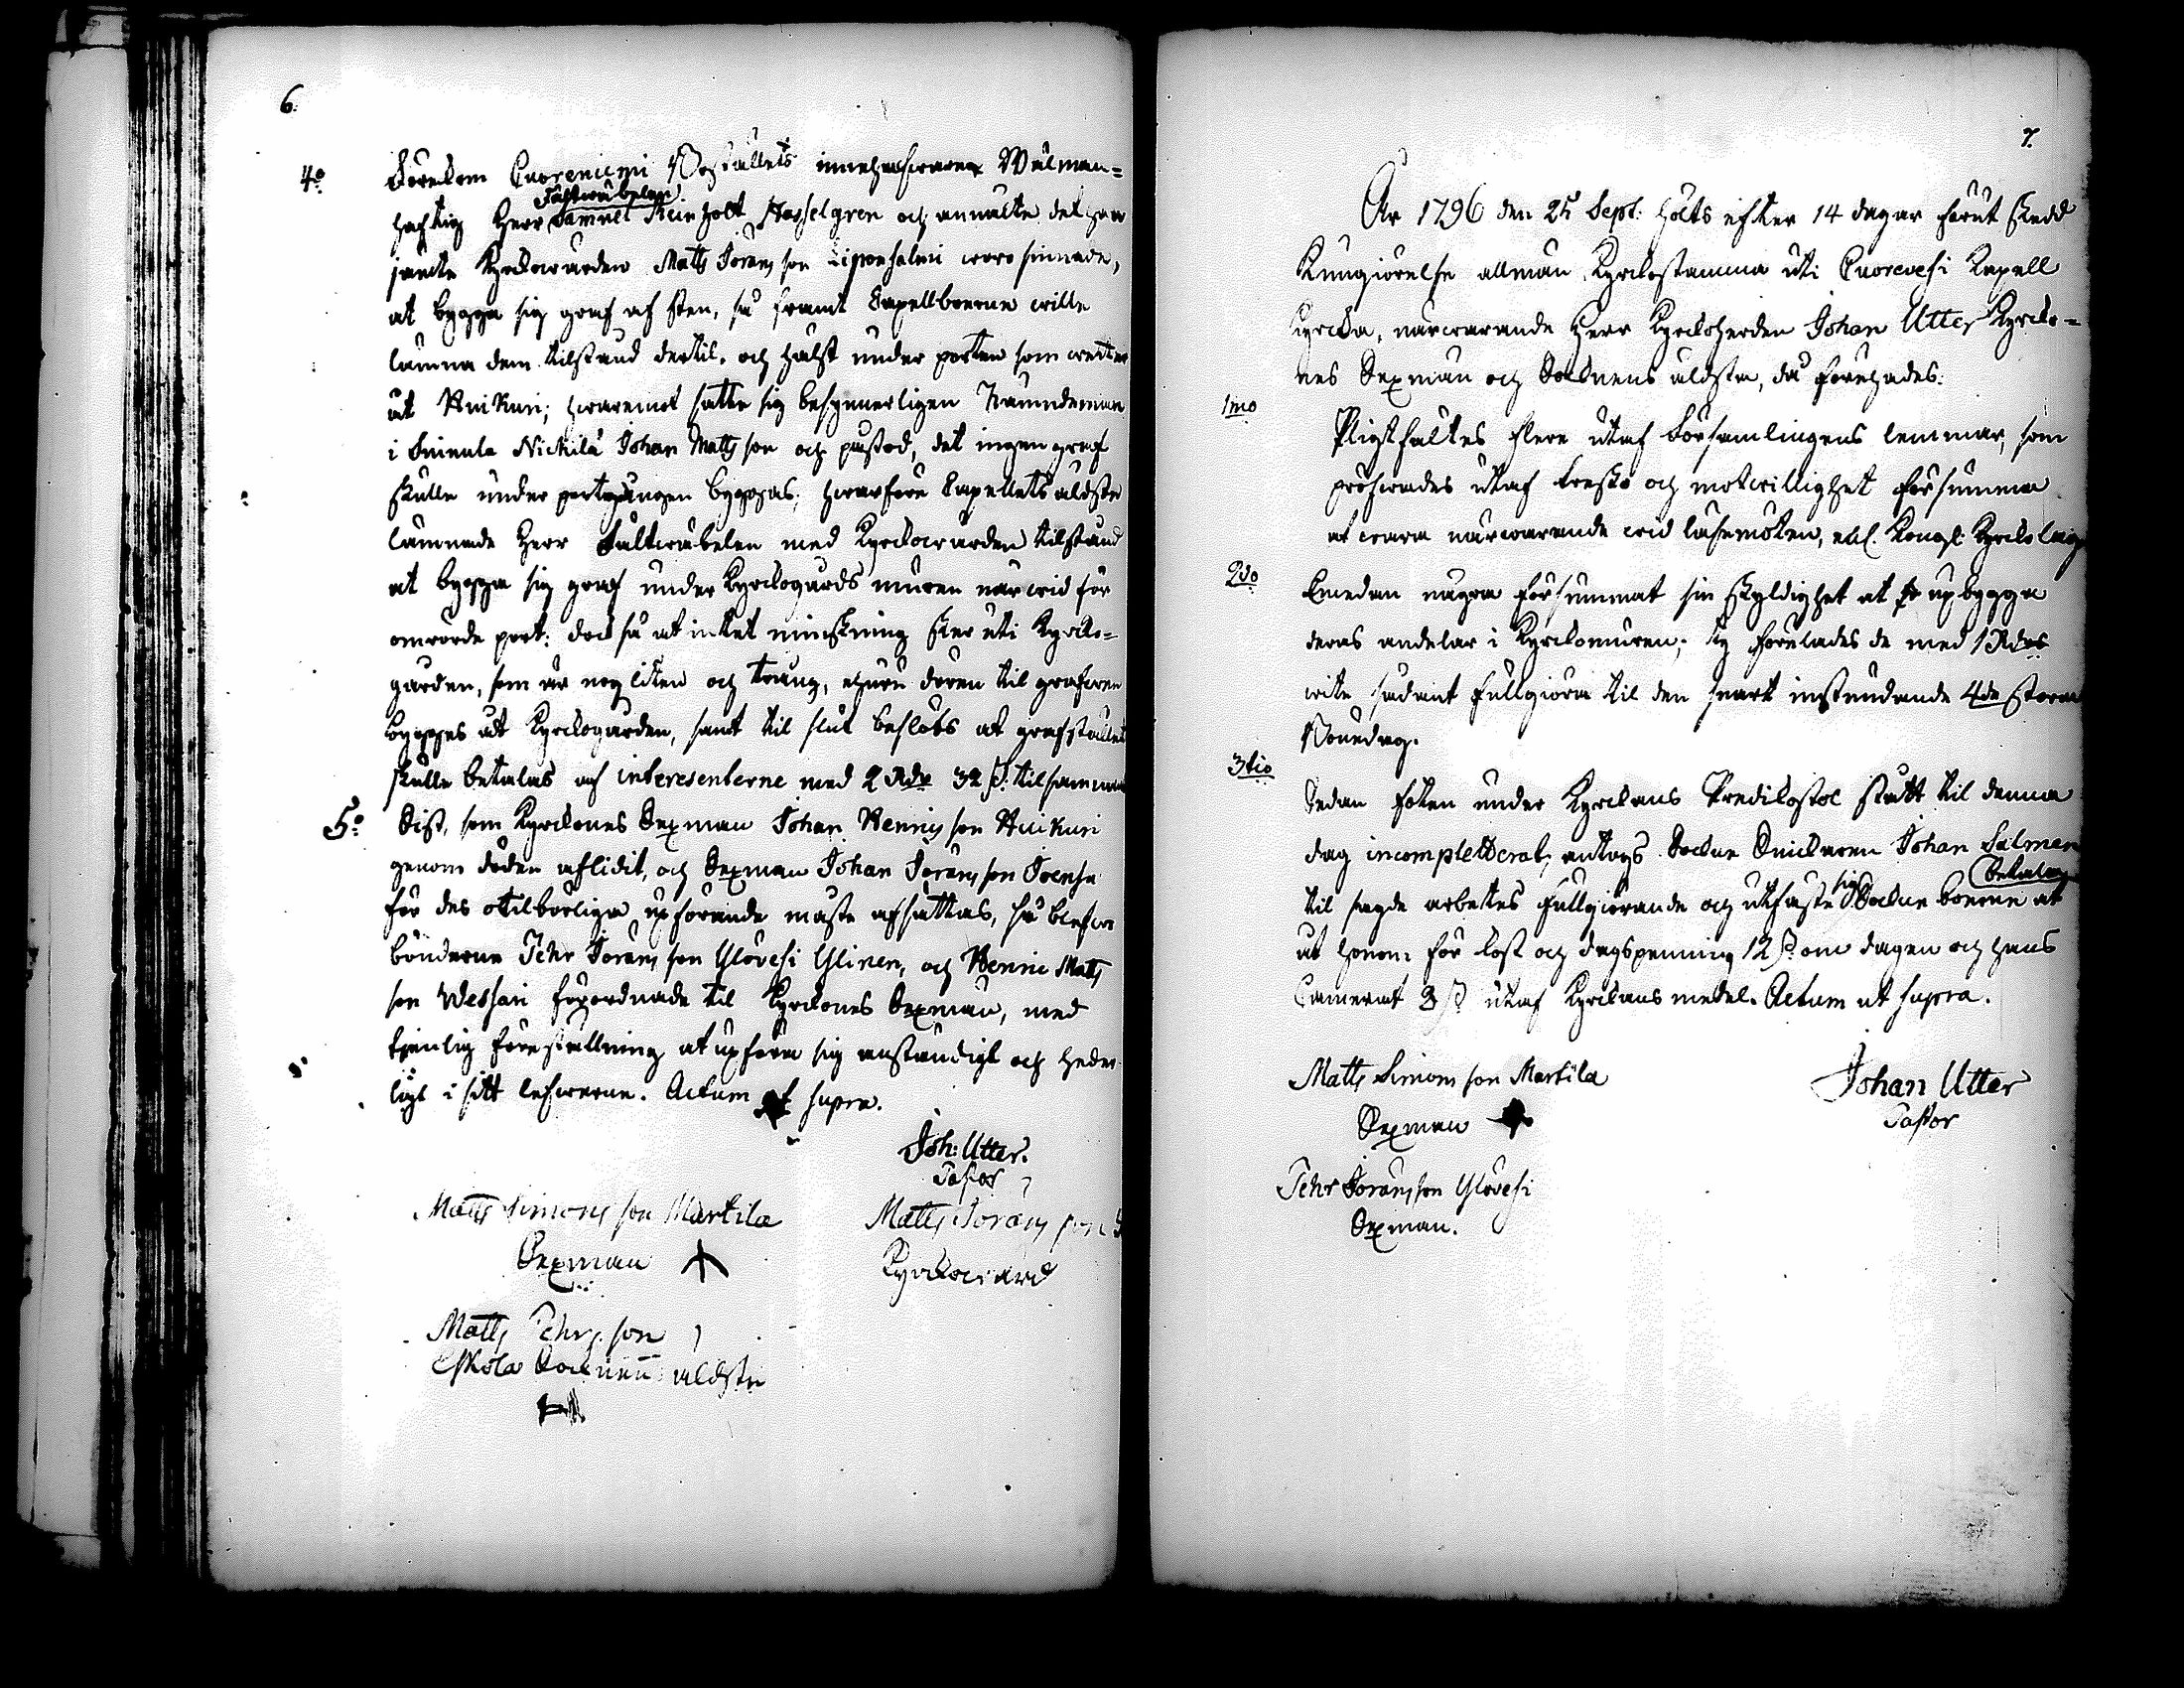 6.
4o Förekom Quoreniemi Boställets innehafwaren Wälman=
Fältwäbelen
haftig Herr Samuel Reinholt Hasselgren och anmälte det han
jämte Kyrkowärden Matts Jöransson Lipoinsalmi woro sinnade,
at bygga sig graf af sten, så framt Capellboerne wille
lämna dem tilstånd dertil, och hälst under porten som wetter
åt Huikuri; hwaremot satte sig besynnerligen Nämndeman
i Suienla Nickilä Johan Mattsson och påstod, det ingen graf
skulle under portgången byggas; hwarföre Capellets äldste
lämnade Herr Fältwäbelen med Kyrkowärden tilstånd
at bygga sig graf under Kyrkogårds muren när wid för
omrörde port: dock så at intet minskning sker uti Kyrko=
gården, som är nog liten och trång, ehuru dören til grafwen
bygges åt Kyrkogården, samt til slut beslöts at grafstället
skulle betalas af interesenterne med 2 Rdr 32 s. tilsamman
5o Sist, som Kyrkones Sexman Johan Hennisson Huikuri
genom döden aflidit, och Sexman Johan Jöransson Joensu
för des otilbörliga upförande måste afsättas, så blefwo
bönderne Pehr Jöransson Ylövesi Ylinen, och Henric Matts
son Wessari förordnade til Kyrkones Sexmän, med
tjenlig föreställning at upföra sig anständigt och heder
ligt i sitt lefwerne. Actum ut supra.
Joh: Utter.
Pastor
Matts Simonsson Martila
Matts Jöransson
Sexman
Kyrkowärd
Matts Pehrsson
Eskola Socknens äldste
7.
År 1796 den 25 Sept: hölts efter 14 dagar förut skedd
Kungiörelse allmän Kyrkostämma uti Quorevesi Kapell
Kyrcka, närwarande Herr Kyrkoherden Johan Utter Kyrko=
nes Sexmän och Socknens äldste, då förehades:
1mo Pligtfältes flere utaf Församlingens lemmar, som
pröfwades utaf tresko och motwillighet försumma
at wara närwarande wid läsemöten, enl. Kongl: Kyrkolag
2do Emedan några försummat sin skyldighet at upbygga
deras andelar i Kyrkomuren; ty förelades de med 1 Rdrs
wite sådant fullgiöra til den snart instundande 4de stora
Bönedag.
3tio Sedan foten under Kyrkans Predikostol stådt til denna
dag incompletterat, antogs Sockne Snickaren Johan Salmen
betala
til sagde arbetes fullgiörande och utfäste sig Sockne boerne at
åt honom för kost och dagspenning 12 s. om dagen och hans
Camerat 8 s utaf Kyrkans medel. Actum ut supra.
Matts Simonsson Martila
Johan Utter
Sexman
Pastor
Pehr Jöransson Ylövesi
Sexman.